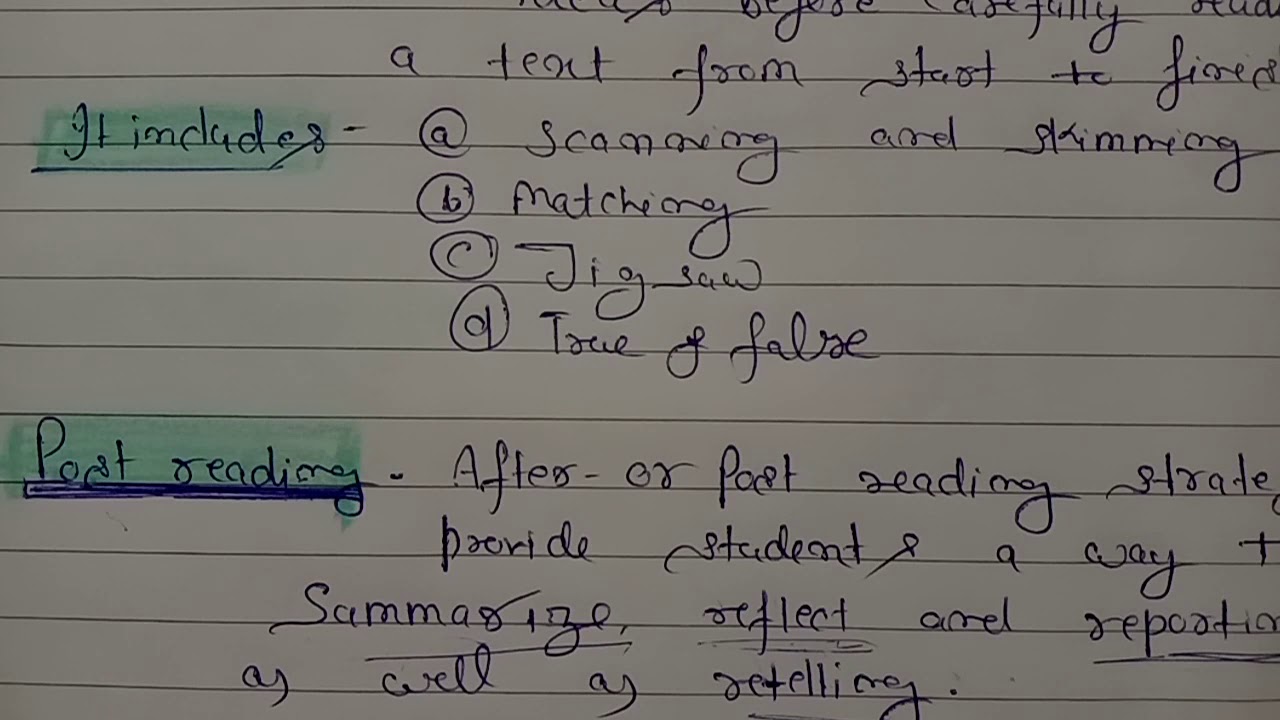 before carefully
a text from start to
It includes - (a) Scanning and skimming
(b) Matching
(c) Jig saw
(d) True of false
Post reading - After- or Post reading strate
provide students a way t
Summarize, reflect and reportin
as well as retelling.